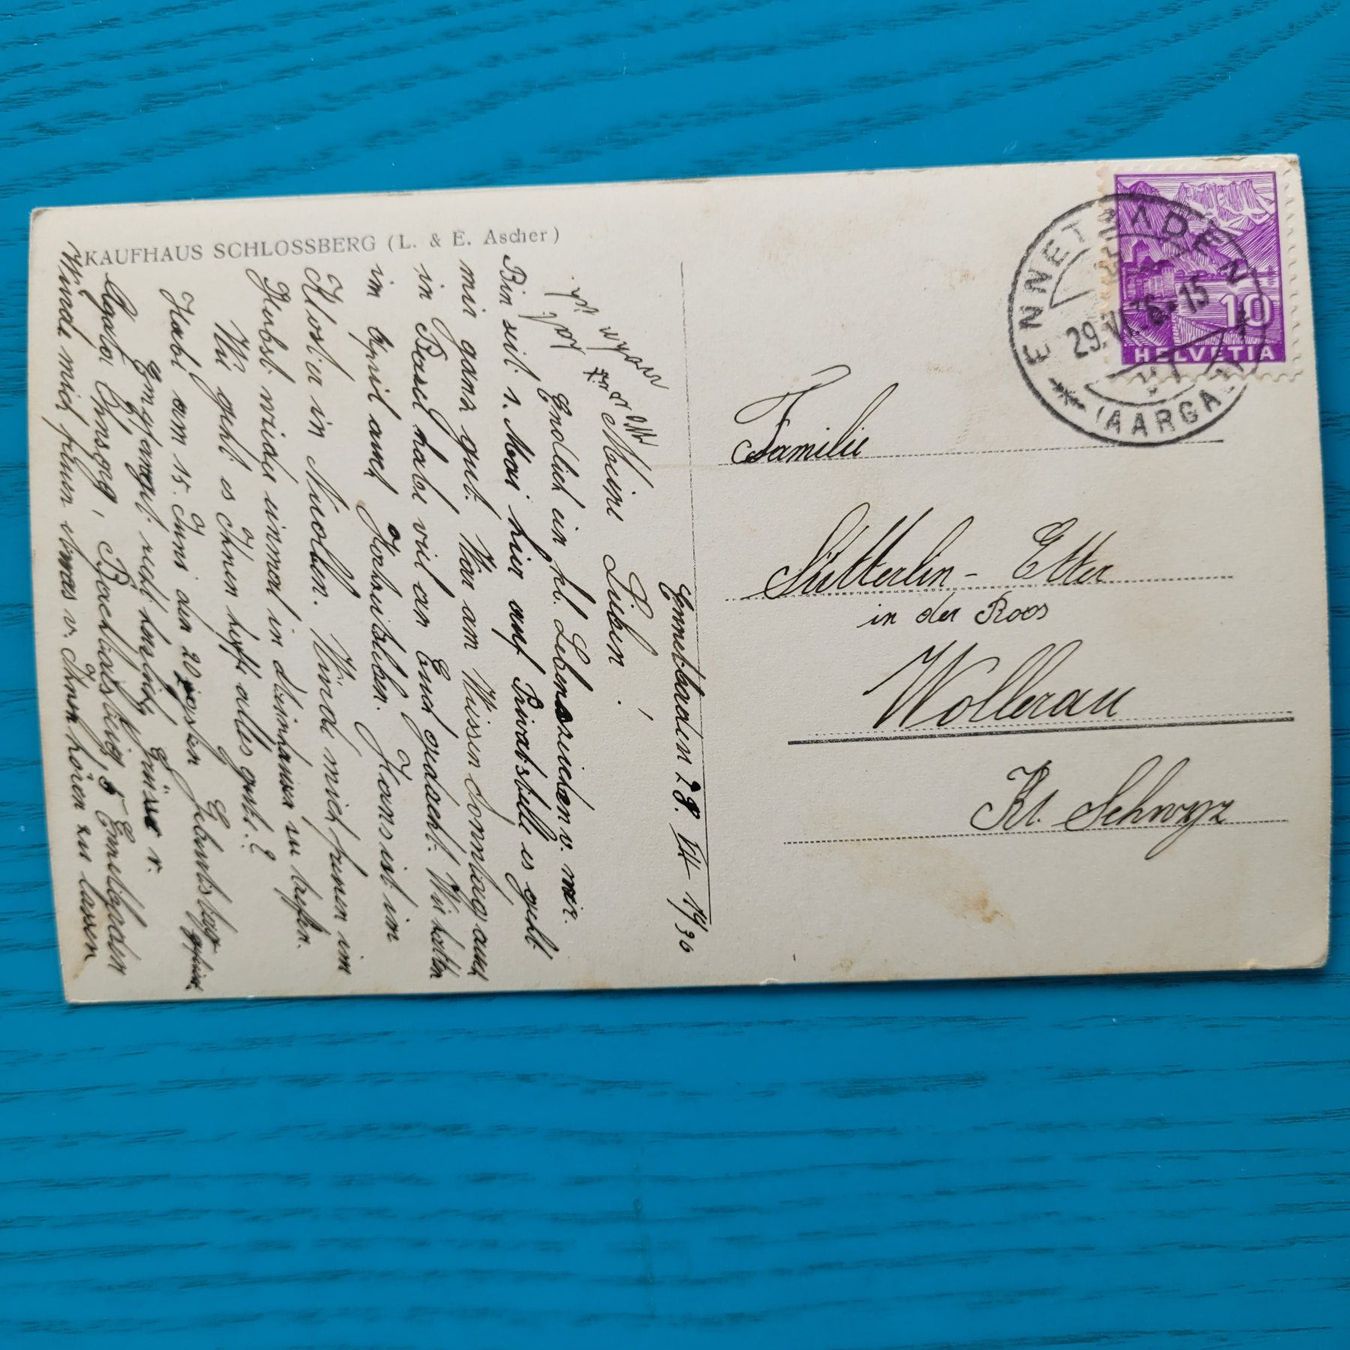 KAUFHAUS SCHLOSSBERG (L. & E. Ascher)
Ennetbaden 28. VI 1936
Meine Lieben!
Endlich ein hl. Lebenszeichen v. mir.
Bin seit 1. Mai hier auf Privatstelle es geht
mir ganz gut. War am Weissen Sonntag auch
in Basel habe viel an Euch gedacht. Wir hatten
im April auch Jubiläen. Hans ist im
Kloster in Nuolen. Würde mich freuen im
Herbst wieder einmal in daheim zu treffen.
Wie geht es Ihnen hoffe alles gute.?
Habe am 15. Juni den 20jogsten Geburtstag gefeiert
Empfanget recht herzlich Grüsse v.
Agatha Bachtalsteig 5 Ennetbaden
Würde mich freuen etwas v. Ihnen hören zu lassen
ENNETBADEN
29.VI.36-15
(AARGAU)
10
HELVETIA
Familie
Sütterlin-Etter
in der Roos
Wollerau
Kt. Schwyz